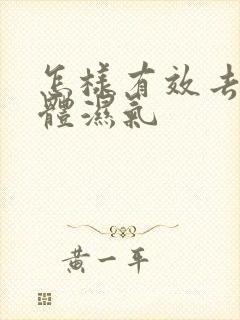 怎樣有效去
體濕氣
黃一平